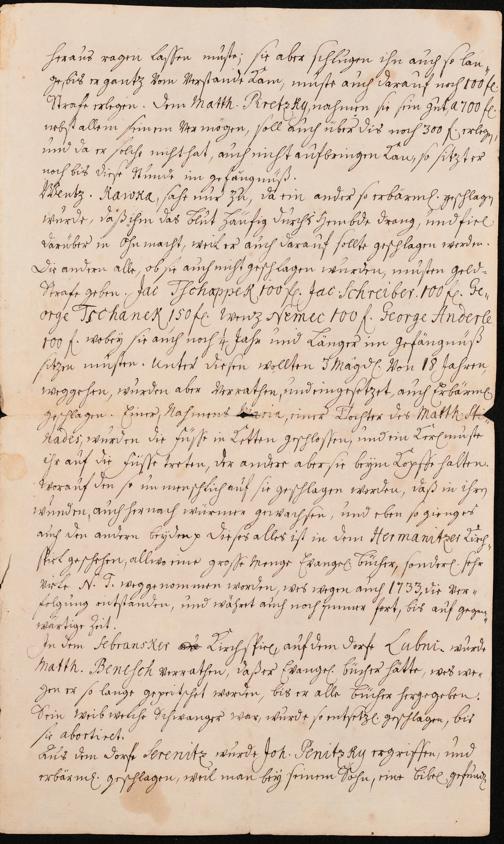 heraus ragen laßen mußte; sie aber schlugen ihn auch so lan-
ge, bis er gantz von Verstande kam, mußte auch darauf noch 100 f.
Strafe erlegen. Dem Matth. Kretzky, nahmen sie sein Gut a 700 f.
nebst allem seinem Vermögen, soll auch über dis noch 300 f. erlegen,
und da er solche nicht hat, auch nicht aufbringen kan, so sitzt er
noch bis diese Stunde im gefängnüß.
Wentz. Kawka, sahe nur zu, da ein ander so erbärml. geschlagen
wurde, daß ihm das Blut häufig durchs Hembde drang, und fiel
darüber in Ohnmacht, weil er auch darauf sollte geschlagen werden.
Die andern alle, ob sie auch nicht geschlagen wurden, mußten geld-
Strafe geben. Jac Tschappek 100 f. Jac. Schreiber. 100 f. Ge-
orge Tschanek 150 f. Wentz Nemec 100 f. George Anderle
100 f. wobey sie auch noch Jahr und länger im gefängnüß
sitzen mußten. Unter diesen wollten 3 Mägdl. von 18 Jahren,
weggehen, wurden aber verrathen, und eingesetzet, auch Erbärml.
geschlagen. Einer, Nahmens einer Tochter des Matth.
wurden die füße in Ketten geschloßen, und ein Kerl mußte
ihr auf die füße treten, der andere aber sie beym Kopffe halten.
Worauf den so unmenschlich auf sie geschlagen worden, daß in ihren
wunden, auch hernach würmer gewachsen, und eben so gienge es
auch den andern beyden. Dieses alles ist in dem Hermanitzer Kirch-
spiel geschehen, allwo eine große Menge Evangel. bücher, sonderl. sehr
viele N. T. weggenommen worden, weswegen auch 1733, die Ver-
folgung entstanden, und währet auch noch immer fort, bis auf gegen-
wärtige Zeit.
In dem Sebransker Kirchspiel, auf dem dorfe Lubni. wurde
Matth. Benesch verrathen, daß er Evangel. bücher hätte, weswe-
gen er so lange gepeitschet worden, bis er alle bücher hergegeben.
Sein Weib welche Schwanger war, wurde so entsetzl. geschlagen, bis
sie abortiret.
Aus dem dorfe Serenitz wurde Joh. Penitzky ergriffen, und
erbärml. geschlagen, weil man bey seinem Sohn, eine bibel gefunden